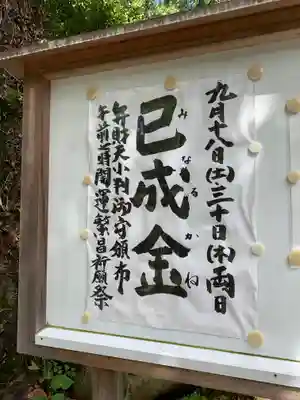 九月十八日(土)三十日(木)両日
巳成金
みなるかね
弁財天小判御守頒布
午前十一時開運繁昌祈願祭